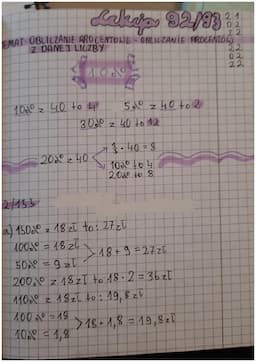 Lekcja 92/93
21
02
22
TEMAT: OBLICZANIE PROCENTOWE - OBLICZANIE PROCENTÓW
Z DANEJ LICZBY
22
02
22
10%
10% z 40 to 4 5% z 40 to 2
30% z 40 to 12
20% z 40
1/5 · 40 = 8
10% to 4
20% to 8
2/133
a) 150% z 18 zł to: 27 zł
100% = 18 zł
50% = 9 zł
18 + 9 = 27 zł
200% z 18 zł to 18 · 2 = 36 zł
110% z 18 zł to: 19,8 zł
100% = 18
10% = 1,8
18 + 1,8 = 19,8 zł